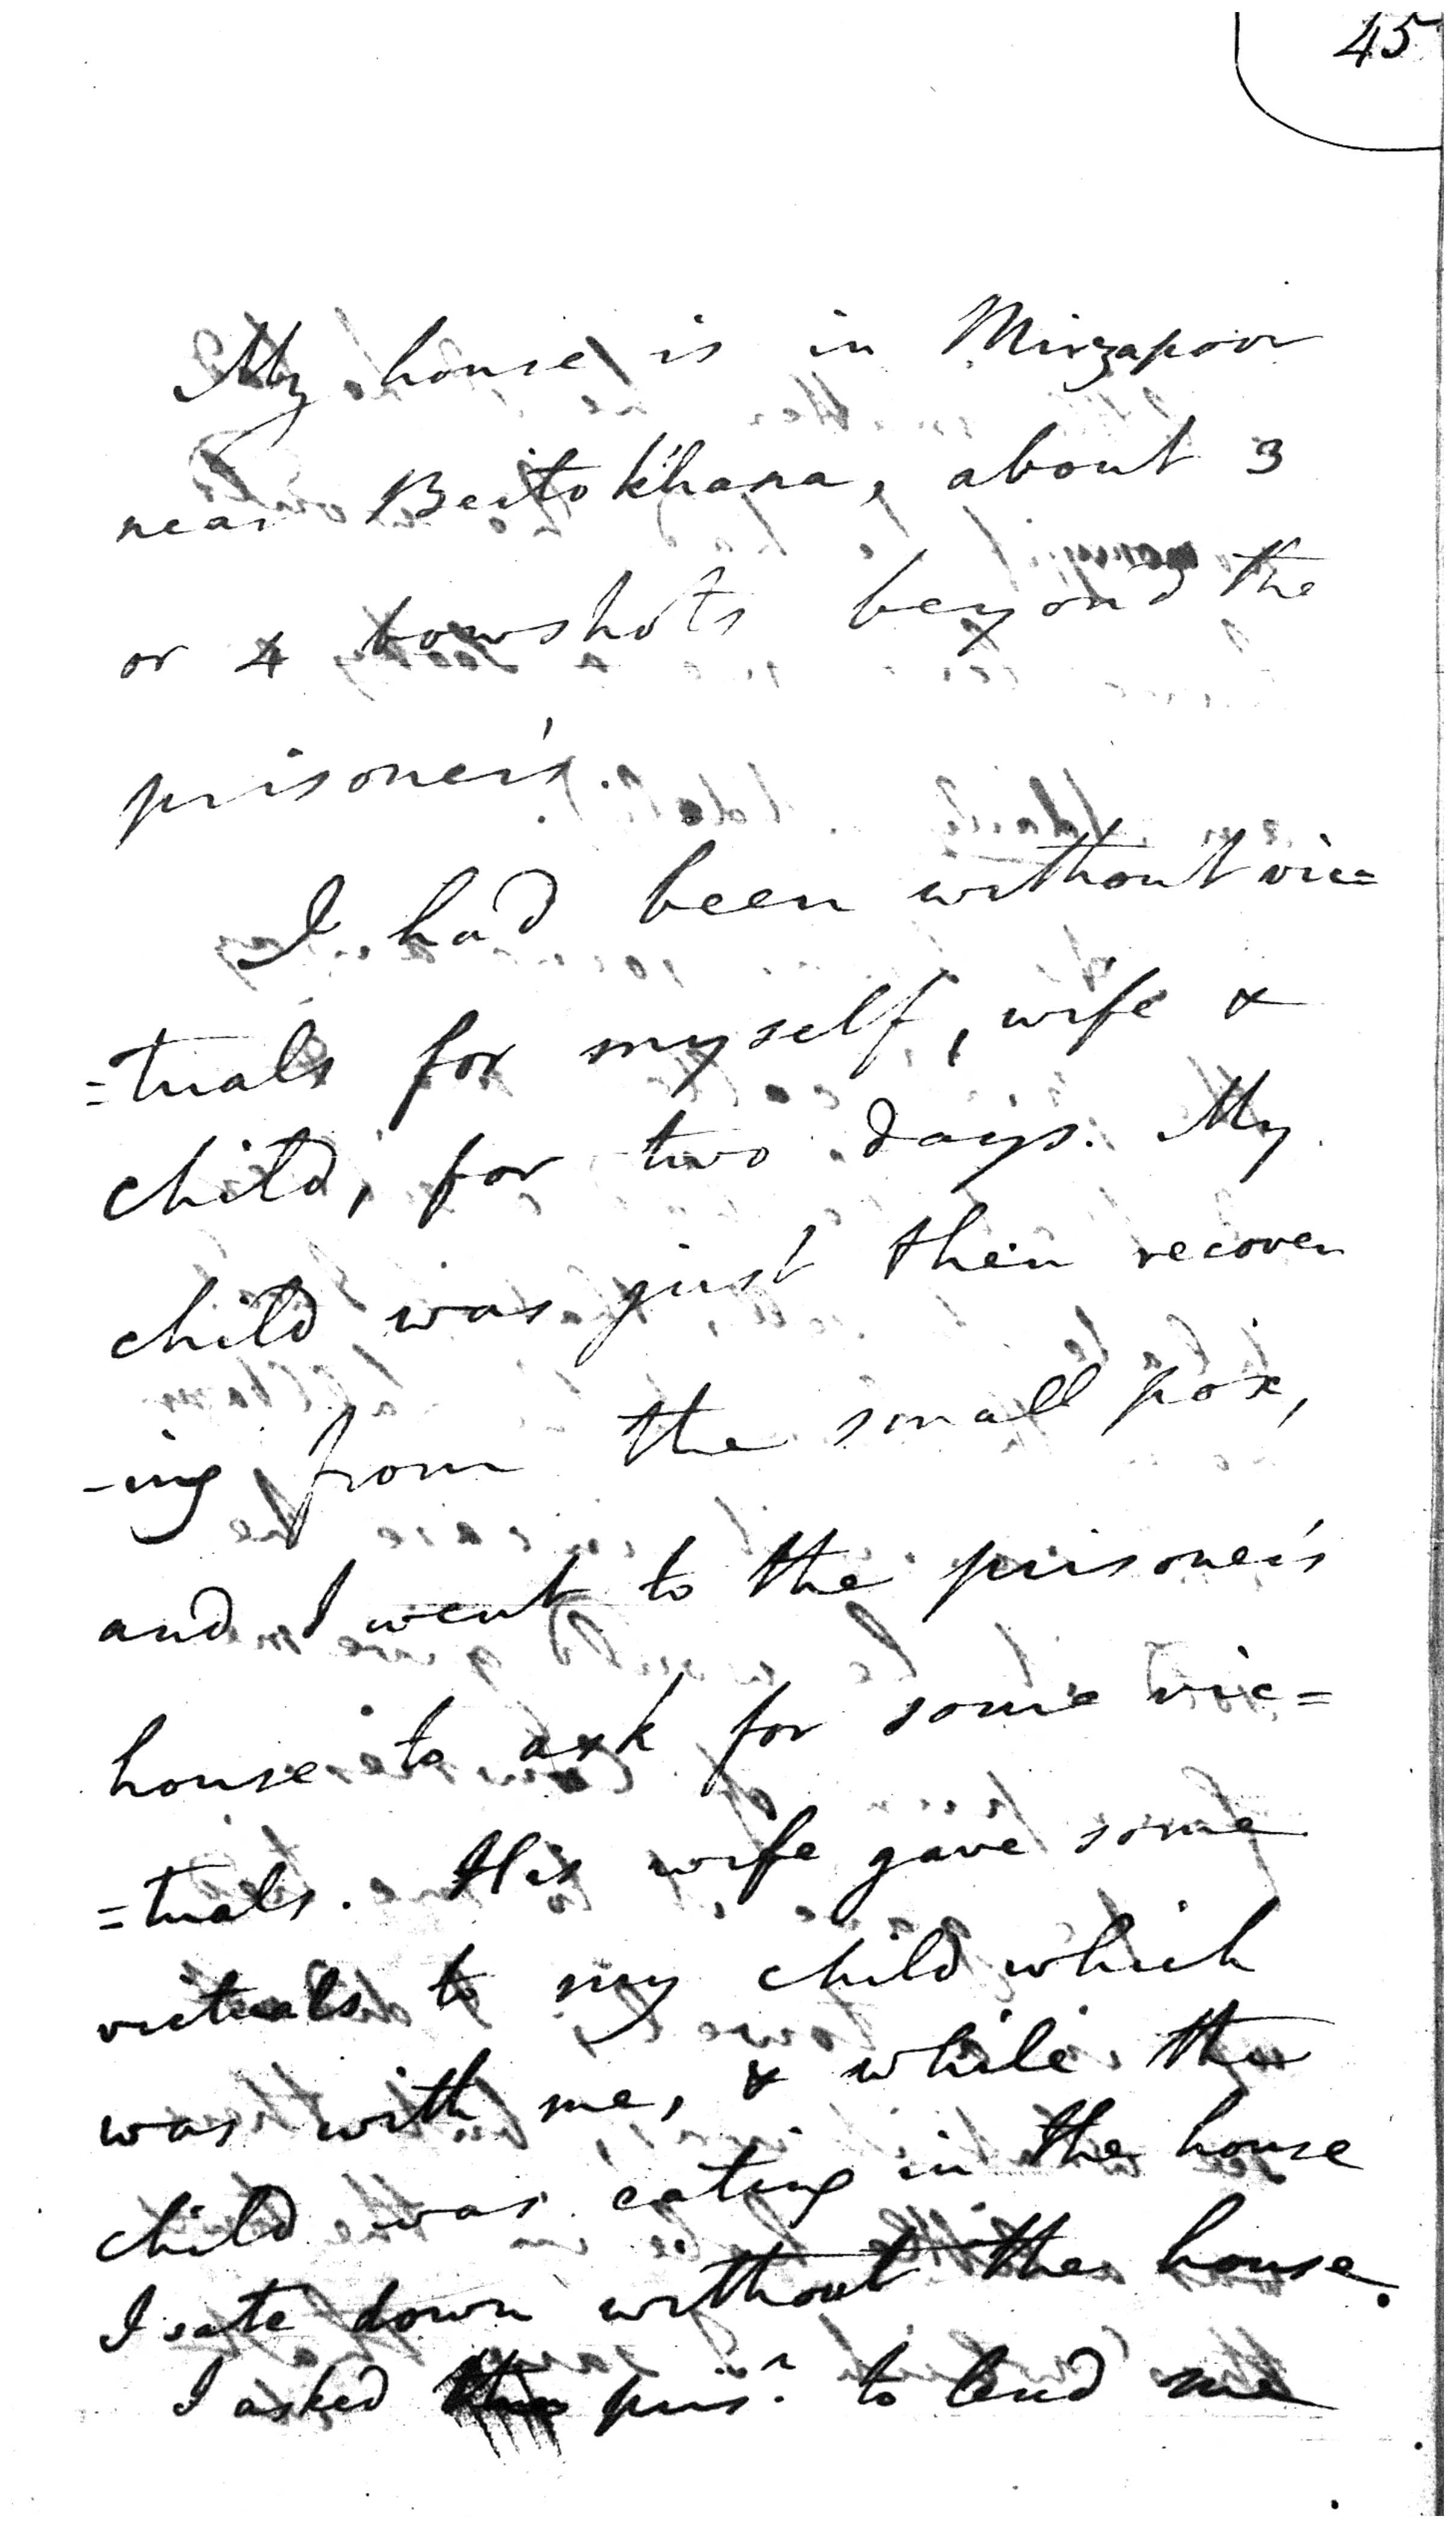 45
My house is in Mirzapoor
near Beitokhana, about 3
or 4 bowshots beyond the
prisoner's.
I had been without vic=
=tuals for myself, wife &
child, for two days. My
child was just then recover
-ing from the small pox,
and I went to the prisoner's
house to ask for some vic=
=tuals. His wife gave some
victuals to my child which
was with me, & while the
child was eating in the house
I sate down without the house.
I asked pris.r to lend me